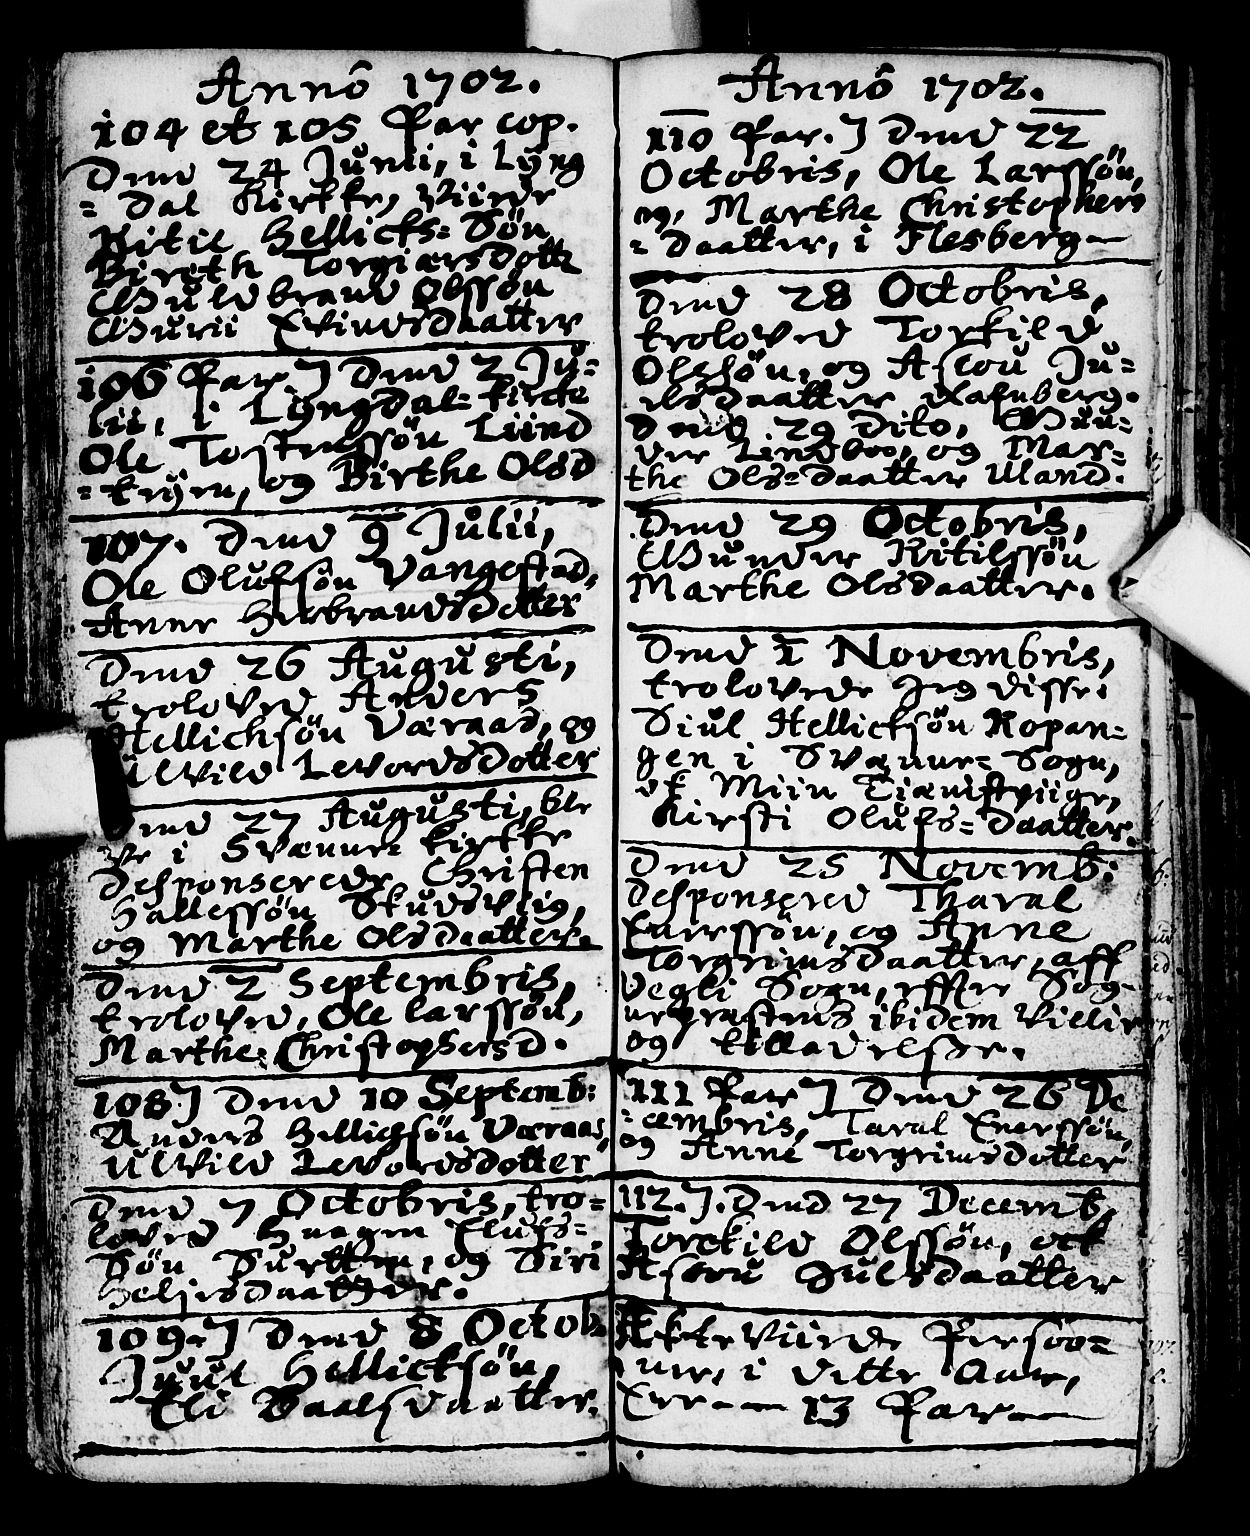 Anno 1702.
104 et 105 Par cop.
Dend 24 Junii, i Lyng
= dal Kirkke, Viirde
Kitil Hellicks=Søn
Bireth Torgiersdott
Guldbrand Olssøn
Gurii Evindsdaatter
106 Par.] Dend 2 Ju=
lii, i Lyngdal=kircke
Ole Tostenssøn Liind
=kiern, og Birthe Olsd
107. Dend 9 Julii,
Ole Olufsøn Vangestad,
Anne Herbrandsdotter
Dend 26 Augusti,
troloved Anders
Hellichsøn Væraad, og
Ulvild Levordsdotter
Dend 27 Augusti, ble
ve i Svenne=kirkke
desponserede Christen
Hallessøn Studsvig,
og Marthe Olsdaatter.
Dend 2 Septembris,
troloved, Ole Larssøn,
Marthe Christophersd.
108] Dend 10 Septemb:
Anders Hellichsøn Væraas,
Ulvild Levordsdotter
Dend 7 Octobris, tro=
loved Haagen Elufs=
Søn Surtten, og Siri
Heljesdaatter.
109.] Dend 8 Octob.
Juul Hellicksøn,
Eli Baalsdaatter.
Anno 1702.
110 Par.] Dend 22
Octobris, Ole Larssøn,
og, Marthe Christophers
=daatter, i Flesberg
Dend 28 Octobris,
troloved Torkild
Olssøn, og Aslou Ju=
elsdaatter
Dend 29 dito, Gun=
der Lindboe, og Mar=
the Ols=daatter Uland.
Dend 29 Octobris,
Gunder Kitilssøn
Marthe Olsdaatter.
Dend 1 Novembris,
trolovede Jeg disse:
Siul Hellicksøn Ropan=
gen i Svenne=Sogn,
et Miin Tienistpiige,
Kirsti Olufs=daatter.
Dend 25 Novemb:
desponsered Tharal
Enerssøn, og Anne
Torgrimsdaatter, aff
Vegli Sogn, effter Sog=
neprestens ibidem Villie
og tilladelsse.
111 Par] Dend 26 De
=cembris, Taral Enerssøn,
og Anne Torgrimsdotter
112.]. Dend 27 Decemb,
Torckild Olssøn, ock
Aslou Julsdaatter
Ækte Viirde Persoo=
ner, i dette Aar,
Ere 13 Par